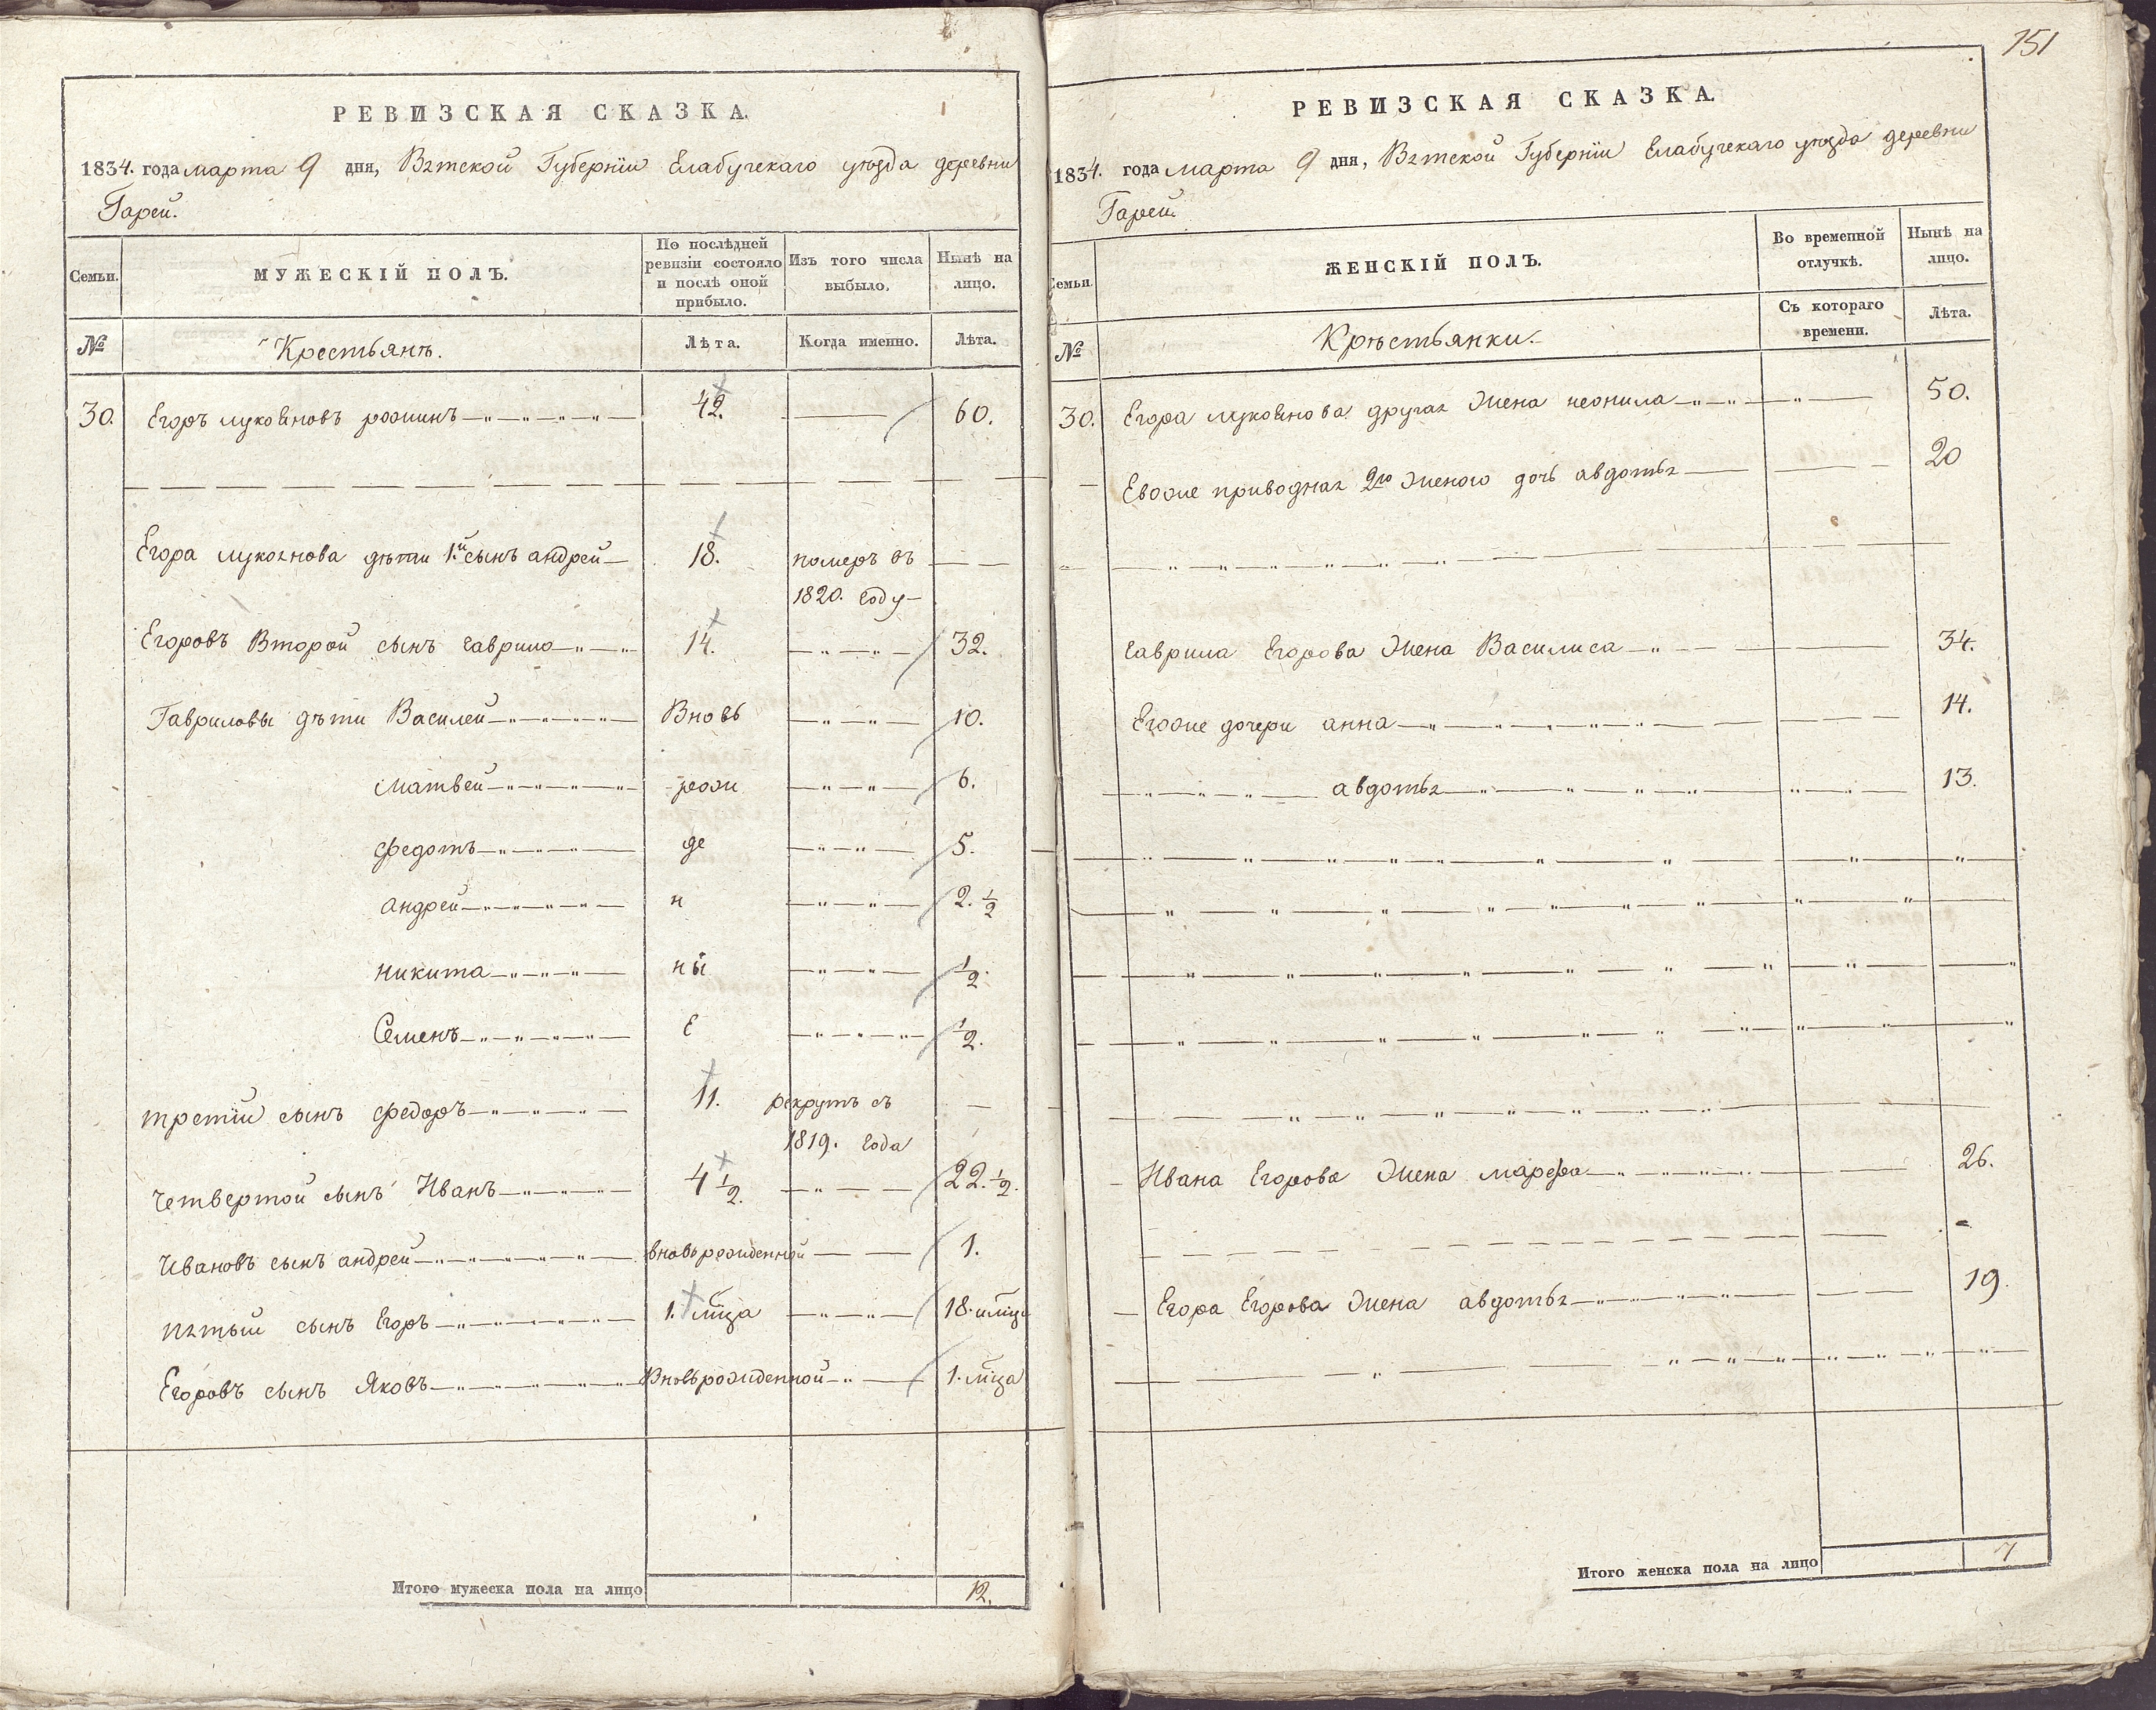 РЕВИЗСКАЯ СКАЗКА.
1834. года марта 9 дня, Вятской Губерніи Елабужскаго уѣзда деревни
Гарей.
Семьи. МУЖЕСКІЙ ПОЛЪ. По послѣдней ревизіи состояло и послѣ оной прибыло. Изъ того числа выбыло. Нынѣ на лицо.
№ Крестьянъ. Лѣта. Когда именно. Лѣта.
30. Егоръ лукояновъ 42. 60.
Егора лукоянова дѣти 1.й сынъ андрей 18. померъ въ
1820. году
Егоровъ Второй сынъ гаврило 14. 32.
Гавриловы дѣти Василей Вновь 10.
матвей рож 6.
федотъ де 5.
андрей н 2. 1/2
никита ны 1/2.
Семенъ е 1/2.
третіи сынъ федоръ 11. рекрутъ съ
1819. года
четвертой сынъ Иванъ 4 1/2. 22. 1/2.
Ивановъ сынъ андрей вновьрожденной 1.
пятый сынъ Егоръ 1. мца 18. и мца
Егоровъ сынъ Яковъ Вновьрожденной 1. мца
Итого мужеска пола на лицо 12.
151
РЕВИЗСКАЯ СКАЗКА.
1834. года марта 9 дня, Вятской Губерніи Елабужскаго уѣзда деревни
Гарей.
Семьи. ЖЕНСКІЙ ПОЛЪ. Во временной отлучкѣ. Нынѣ на лицо.
№ Крѣстьянки. Съ котораго времени. Лѣта.
30. Егора лукоянова другая жена неонила 50.
Евоже приводная 2го женою дочь авдотья 20
гаврила Егорова жена Василиса 34.
Егоже дочери анна 14.
авдотья 13.
Ивана Егорова жена марфа 26.
Егора Егорова жена авдотья 19.
Итого женска пола на лицо 7